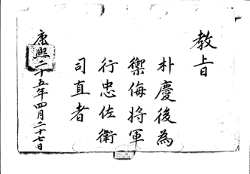 教旨
朴慶後為
禦侮將軍
行忠佐衛
司直者
康熙二十五年四月二十七日